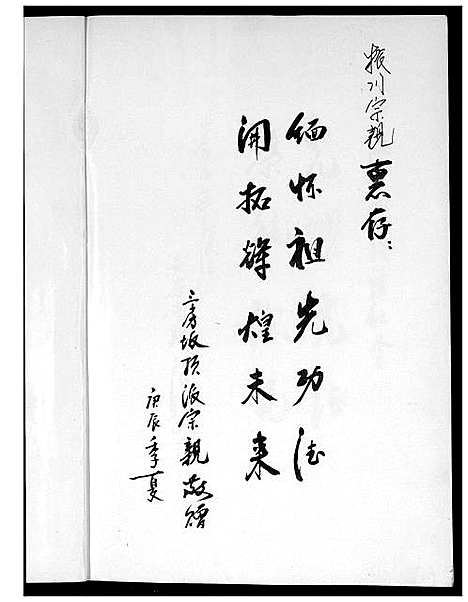 振川宗親惠存：
缅怀祖先功德
開拓辉煌未来
三房坂顶派宗親敬贈
庚辰季夏